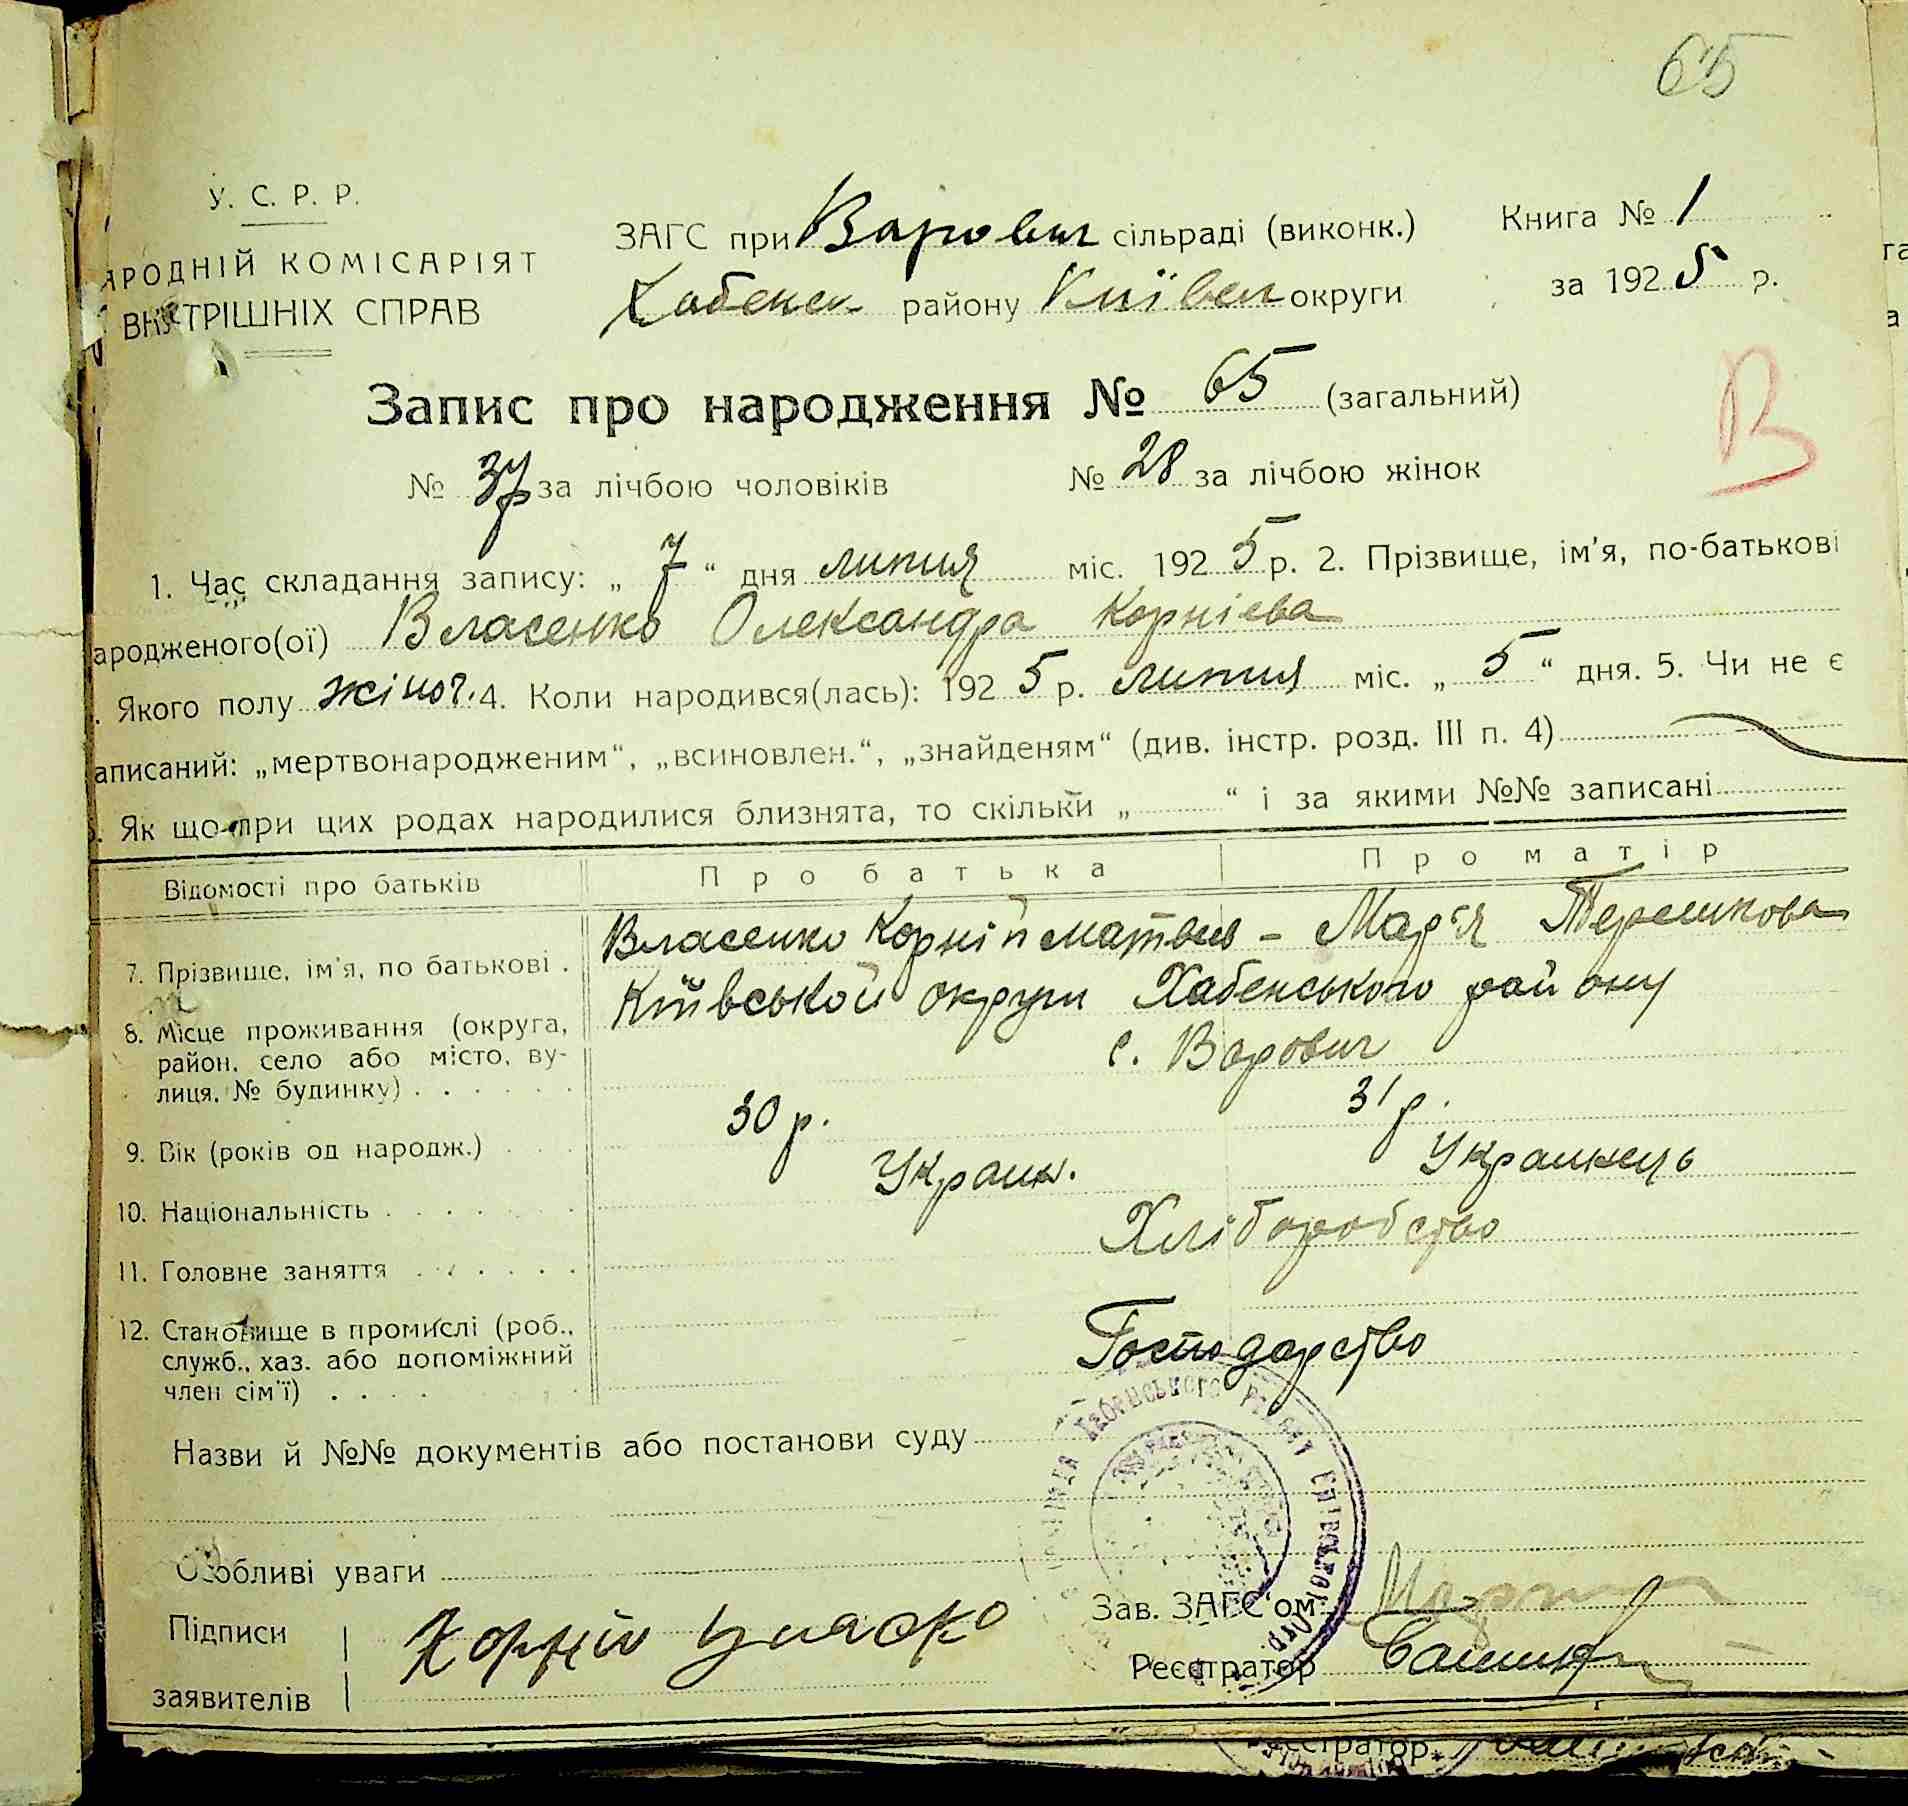 65
У. С. Р. Р.
АРОДНІЙ КОМІСАРІЯТ
ВНУТРІШНІХ СПРАВ
ЗАГС при Варович сільраді (виконк.)
Хабенск району Київск округи
Книга № 1
за 1925 р.
Запис про народження № 65 (загальний)
В
№ 37 за лічбою чоловіків № 28 за лічбою жінок
1. Час складання запису: „ 7 “ дня липня міс. 1925 р. 2. Прізвище, ім’я, по-батькові
ародженого(ої) Власенко Олександра Корнієва
. Якого полу жіноч. 4. Коли народився(лась): 1925 р. липня міс. „ 5 “ дня. 5. Чи не є
аписаний: „мертвонародженим“, „всиновлен.“, „знайденям“ (див. інстр. розд. III п. 4)
. Як що при цих родах народилися близнята, то скільки „ “ і за якими №№ записані
Відомості про батьків Про батька Про матір
7. Прізвище, ім’я, по батькові . Власенко Корній Матвієв – Мар’я Терешкова
8. Місце проживання (округа, район, село або місто, вулиця, № будинку) . . . . . . Київської округи Хабенського району
с. Варович
9. Вік (років од народж.) . . . 30 р. 31 р.
10. Національність . . . . . . . Украин. Украинець
11. Головне заняття . . . . . . Хліборобство
12. Становище в промислі (роб., служб., хаз. або допоміжний член сім’ї) . . . . Господарство
Назви й №№ документів або постанови суду
Особливі уваги
Підписи
заявителів
Корній
Зав. ЗАГС’ом
Реєстратор
Реєстратор